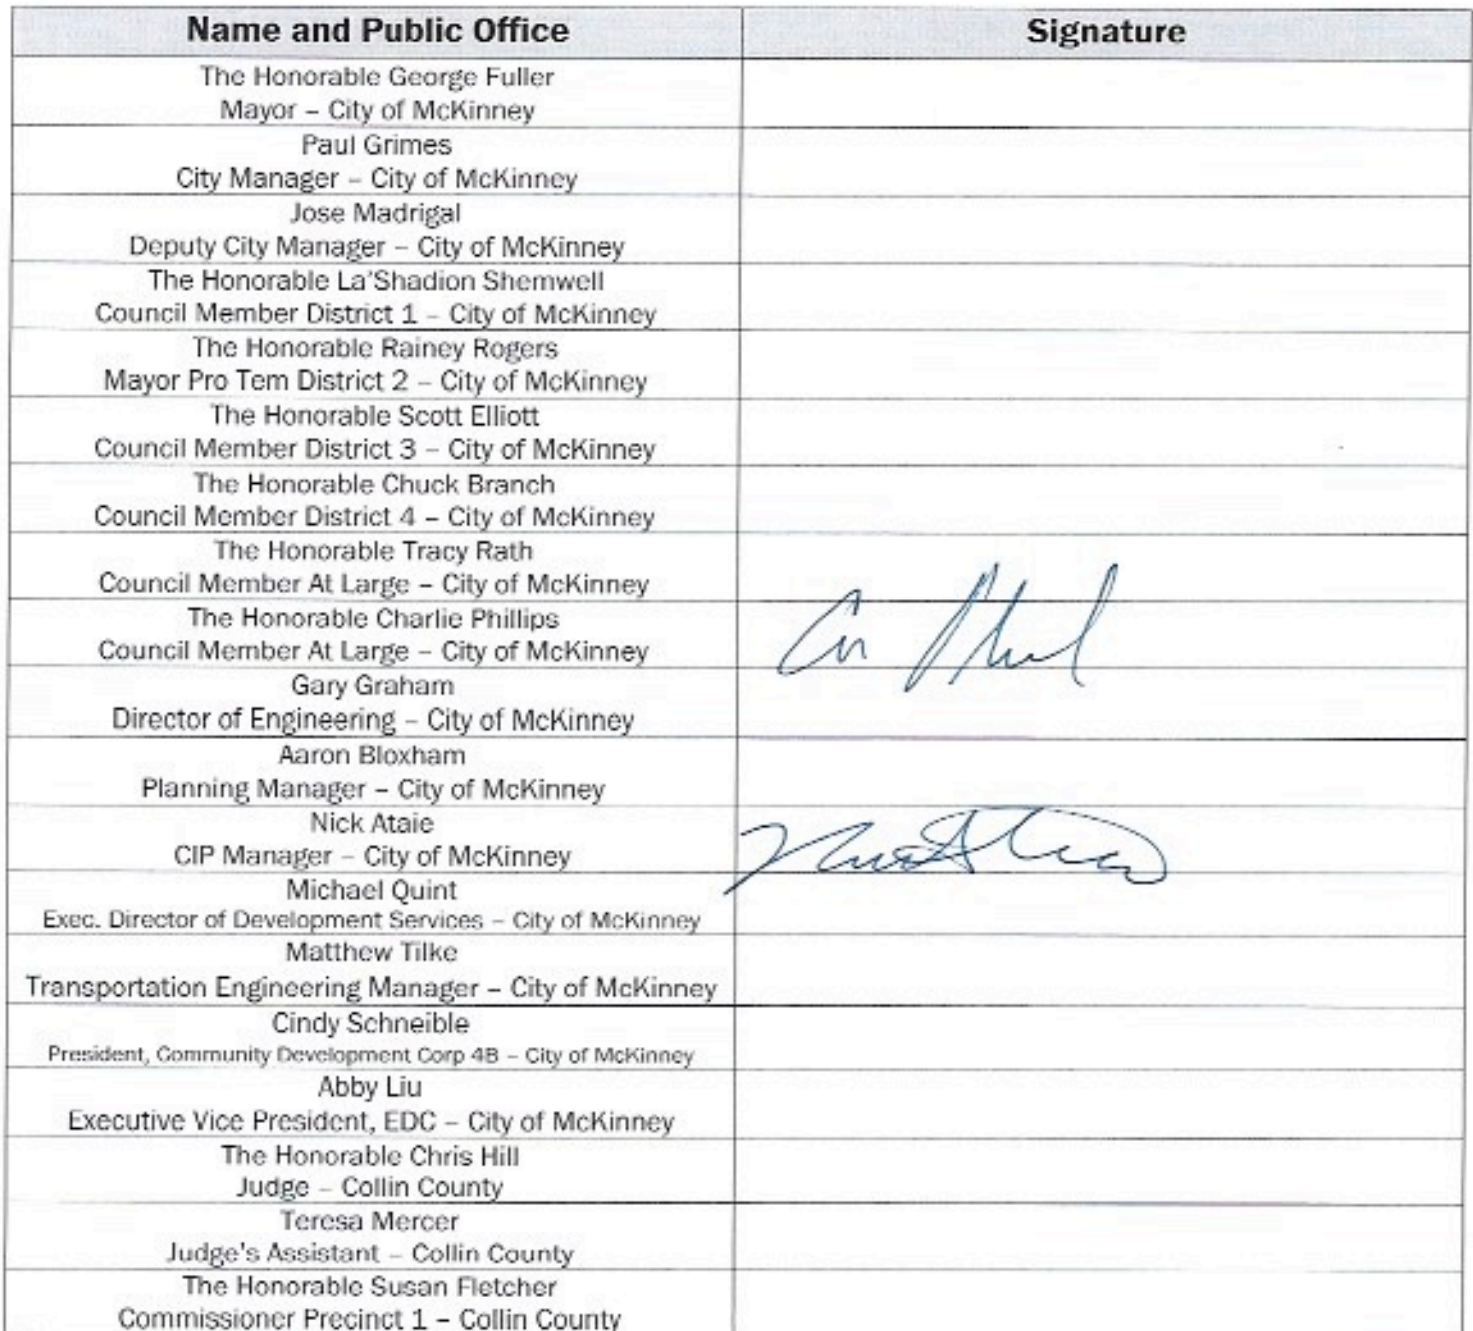 Name and Public Office Signature
The Honorable George Fuller
Mayor – City of McKinney
Paul Grimes
City Manager – City of McKinney
Jose Madrigal
Deputy City Manager – City of McKinney
The Honorable La'Shadion Shemwell
Council Member District 1 – City of McKinney
The Honorable Rainey Rogers
Mayor Pro Tem District 2 – City of McKinney
The Honorable Scott Elliott
Council Member District 3 – City of McKinney
The Honorable Chuck Branch
Council Member District 4 – City of McKinney
The Honorable Tracy Rath
Council Member At Large – City of McKinney
The Honorable Charlie Phillips
Council Member At Large – City of McKinney
Gary Graham
Director of Engineering – City of McKinney
Aaron Bloxham
Planning Manager – City of McKinney
Nick Ataie
CIP Manager – City of McKinney
Michael Quint
Exec. Director of Development Services – City of McKinney
Matthew Tilke
Transportation Engineering Manager – City of McKinney
Cindy Schneible
President, Community Development Corp 4B – City of McKinney
Abby Liu
Executive Vice President, EDC – City of McKinney
The Honorable Chris Hill
Judge – Collin County
Teresa Mercer
Judge's Assistant – Collin County
The Honorable Susan Fletcher
Commissioner Precinct 1 – Collin County